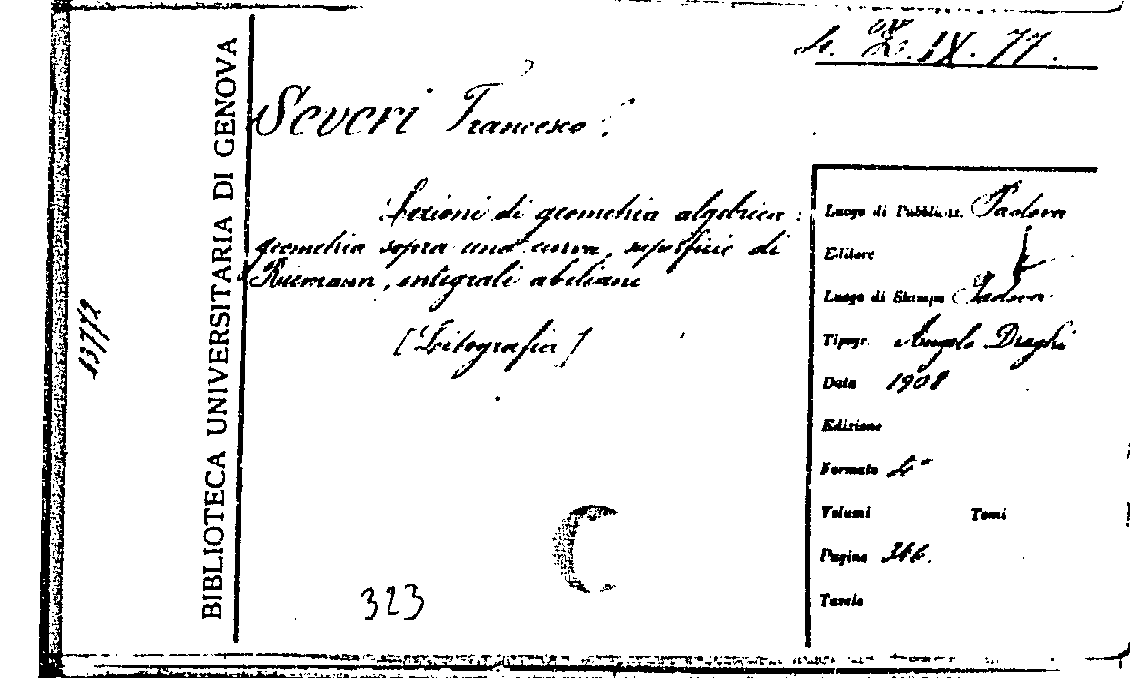 4. Z. IX. 77.
BIBLIOTECA UNIVERSITARIA DI GENOVA
13772
Severi Francesco.
Lezioni di geometria algebrica:
geometria sopra una curva, superficie di
Riemann, integrali abeliani
[Litografia]
323
Luogo di Pubblicaz. Padova
Editore
Luogo di Stampa Padova
Tipogr. Angelo Draghi
Data 1908
Edizione
Formato 4°
Volumi Tomi
Pagine 366.
Tavole